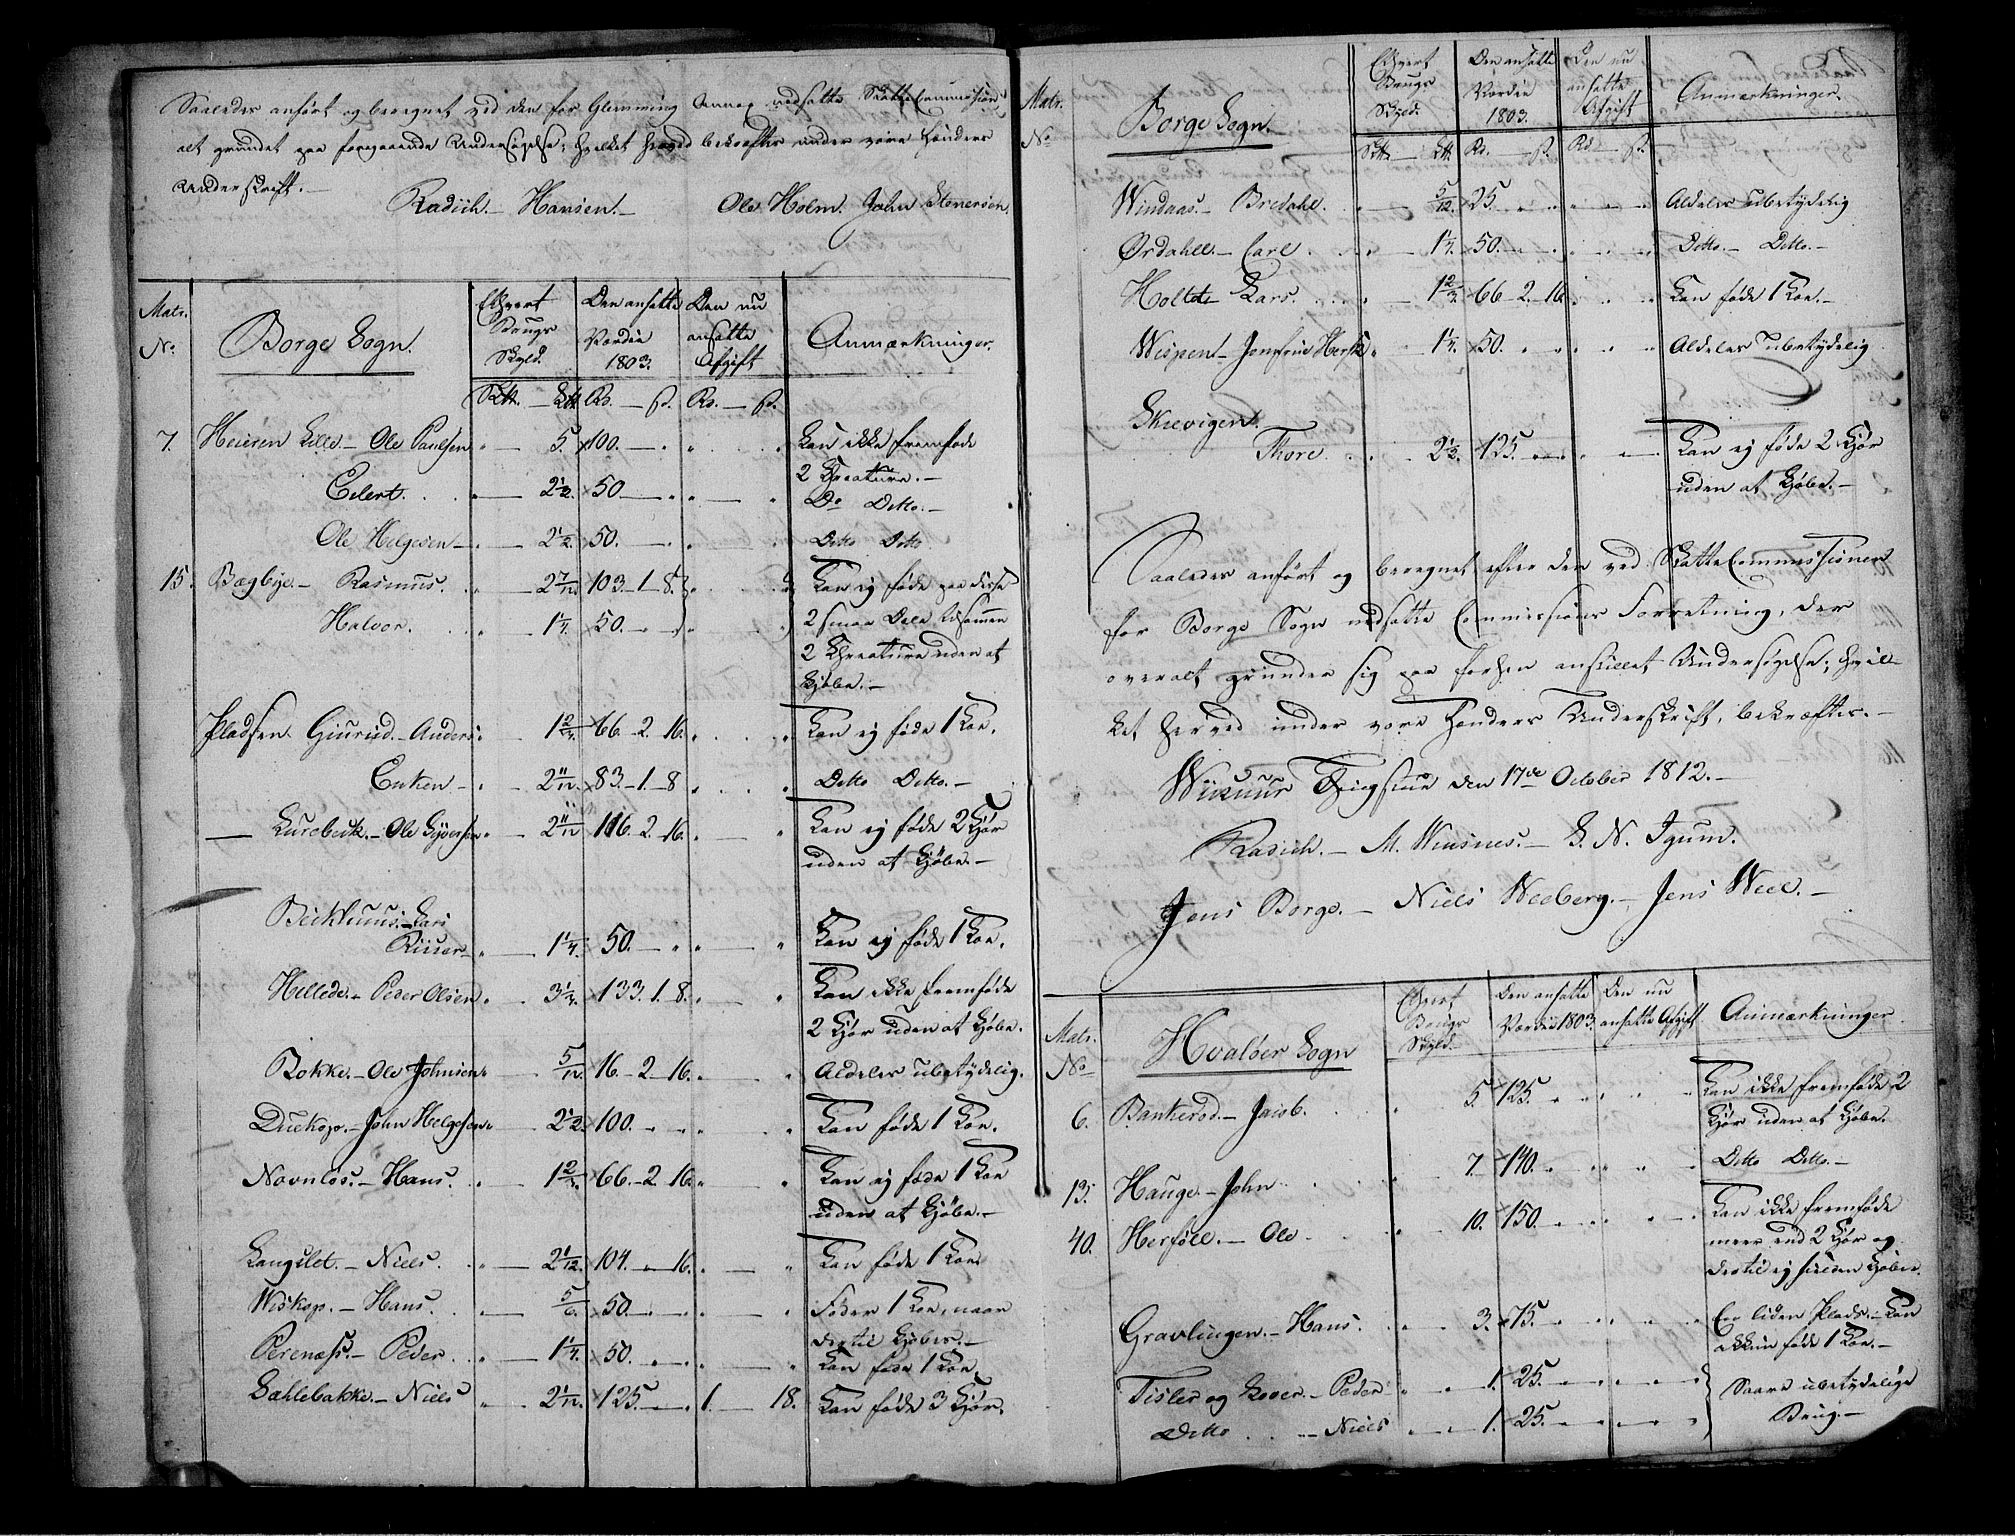 Saaledes anført og beregnet ved den for Glemming Annex nedsatte Skatte Commission,
alt grundet paa foregaaende Undersøgelse; hvilket herved bekræftes under vore Hænders
Underskrift.—
Radich.— Hansen.— Ole Holm. John Stenersen.
Matr. No. Borge Sogn. Ethvert Brugs Skyld. Den ansatte Værdie 1803. Den nu ansatte Afgift Anmærkninger.
Rd. — ß. Rd. — ß.
7. Heieren Lille.— Ole Paulsen " — 5. 100. — " " Kan ikke fremføde
2 Creature.—
Eilert. . " — 2½. 50. — " " — " Do Ditto.—
Ole Helgesen — " — 2½. 50. — " " Ditto Ditto
15. Bøgbye.— Rasmus. . " — 2 7/12. 103. 1. 8. " Kan ej føde paa disse
Halvor. . " — 1¼. 50. " " " 2 smaa Dele tilsammen
2 Creature uden at
Kjøbe.—
Pladsen Giurud.— Anders. — 1⅔. 66. 2. 16. " Kan ej føde 1 Koe.
Enken — " — 2 11/12. 83. 1. 8 " Ditto Ditto.—
— Lurebek.— Ole Syversen " — 2 11/12 116. 2. 16. " Kan ej føde 2 Kjør
uden at Kjøbe.—
Bekhuus.— Lars
" — 1¼. 50. — " " — " Kan ej føde 1 Koe.
Hellede.— Peder Olsen " — 3⅓. 133. 1. 8. " — " Kan ikke fremføde
2 Kjør uden at Kjøbe.
Bokke.— Ole Johnsen " — 5/12. 16. 2. 16. " — " Aldeles ubetydelig.
Duekop.— John Helgesen " — 2½. 100. " " " Kan føde 1 Koe.
Navnløs.— Hans. . " — 1⅔. 66. 2 16. " — " Kan ej føde 1 Koe
uden at Kjøbe.—
Langslet.— Niels. . " — 2 1/12. 104. " 16. " — " Kan føde 1 Koe
Wiskop.— Hans. . " — 5/6. 50. " " " — " Føder 1 Koe, naar
dertil Kjøbes.—
Perenæss.— Peder . . " — 1¼. 50. " " — " Kan føde 1 Koe.
Sahlebakke.— Niels " — 2 1/12. 125. — " 1. 18. Kan føde 3 Kjør.
Matr. No Borge Sogn. Ethvert Brugs Skyld. Den ansatte Værdie 1803. Den nu ansatte Afgift Anmærkninger.
Rd. — ß. Rd. — ß.
Windaas.— Bredahl. . " — 5/12. 25. " " " " Aldeles ubetydelig
Ørdahll.— Carl . . " — 1¼. 50. " " " Ditto.— Ditto.—
Holtet Lars. . . " — 1⅔. 66. 2. 16. " " Kan føde 1 Koe.—
Wispen.— Jomfrue " — 1¼. 50. " " " " Aldeles ubetydelig
Skievigen.
Thore. . " " 2½. 125. " " " Kan ej føde 2 Kjør
uden at Kjøbe.—
Saaledes anført og beregnet efter den ved Skatte Commissionen
for Borge Sogn nedsatte Commissions Forretning, der
overalt grunder sig paa forhen anstillet Undersøgelse; hvil-
ket herved under vore Hænders Underskrift, bekræftes.—
Thingstue den 17de October 1812.—
Radich.— M. Winsnes.— S. N. Igum.
Jens Borge.— Niels Weeberg.— Jens Weel.—
Matr. No Hvaløer Sogn Ethvert Brugs Skyld. Den ansatte Værdie 1803. Den nu ansatte Afgift Anmærkninger.
6. Bankerød.— Jacob. . " 5. 125. " " " " Kan ikke fremføde 2
Kjør uden at Kjøbe.
13. Hauge.— John . . " 7. 140. " " " Ditto Ditto.—
40. Herføll.— Ole . . " 10. 150. " " " Kan ikke fremføde
meer end 2 Kjør og
dertil ej siden Kjøbe.
Gravlingen.— Hans. . " " 3. 75. " " " " En liden Plads.— Kan
ikkun føde 1 Koe.—
Tisler og — Peder " " 1. 25. " " " " Saare ubetydelige
Ditto . . — Niels " " 1. 25. " " " " Brug.—